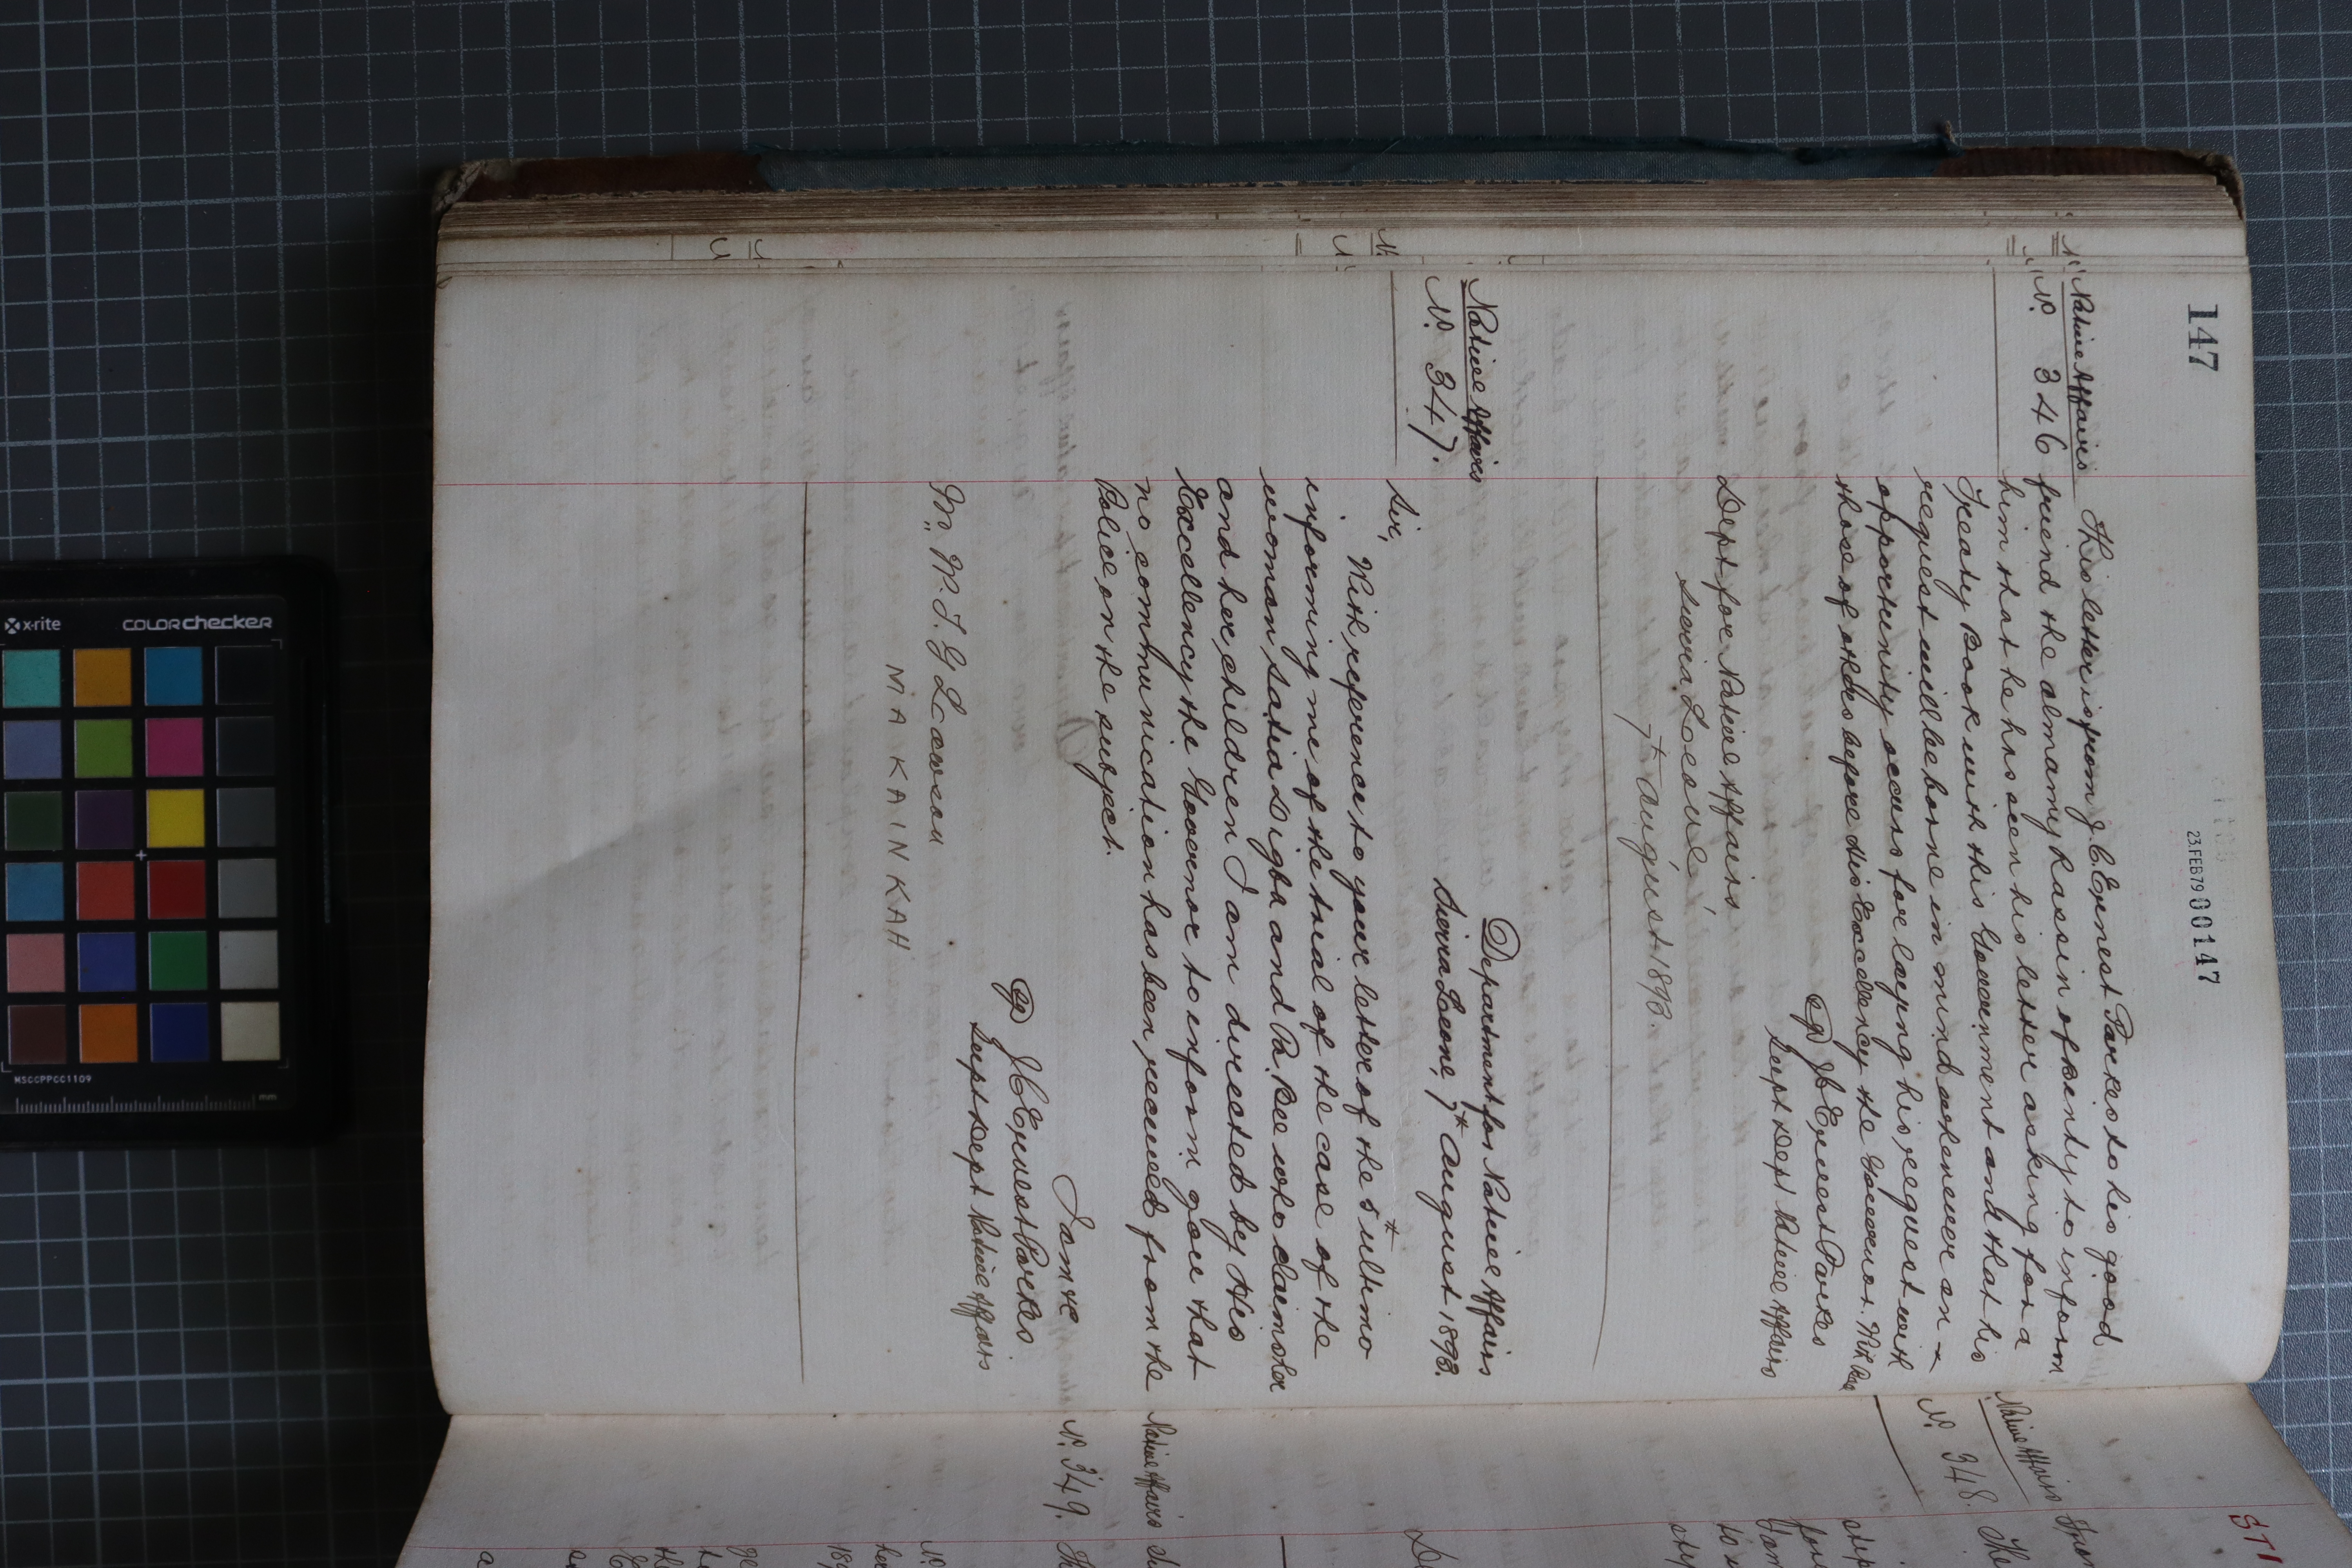 147
23.FEB79 000147
Native Affairs
No. 346
This letter is from J. C. Ernest Parkes to his good
friend the almamy Lassin of to inform
him that he has seen his letter asking for a
Treaty Book with this Government and that his
request will be borne in mind whenever an
opportunity occurs for laying his request with
those of others before His Excellency the Governor.
J C Ernest Parkes
Supt Dept Native Affairs
Dept for Native Affairs
Sierra Leone,
7th August 1893.
Native Affairs
No. 347.
Department for Native Affairs
Sierra Leone, 7th August 1893.
Sir,
With reference to your letter of the 5th ultimo
informing me of the trial of the case of the
woman Satia Digba and her children
and her children I am directed by His
Excellency the Governor to inform you that
no communication has been received from the
Police on the subject.
I am &c
J C Ernest Parkes
Supt Dept Native Affairs
Mr. W. T. G Lawson
MA KAINKAH
Native Affairs
No. 348.
Native Affairs
No. 349.
x-rite
COLORchecker
MSCCPPCC1109
mm